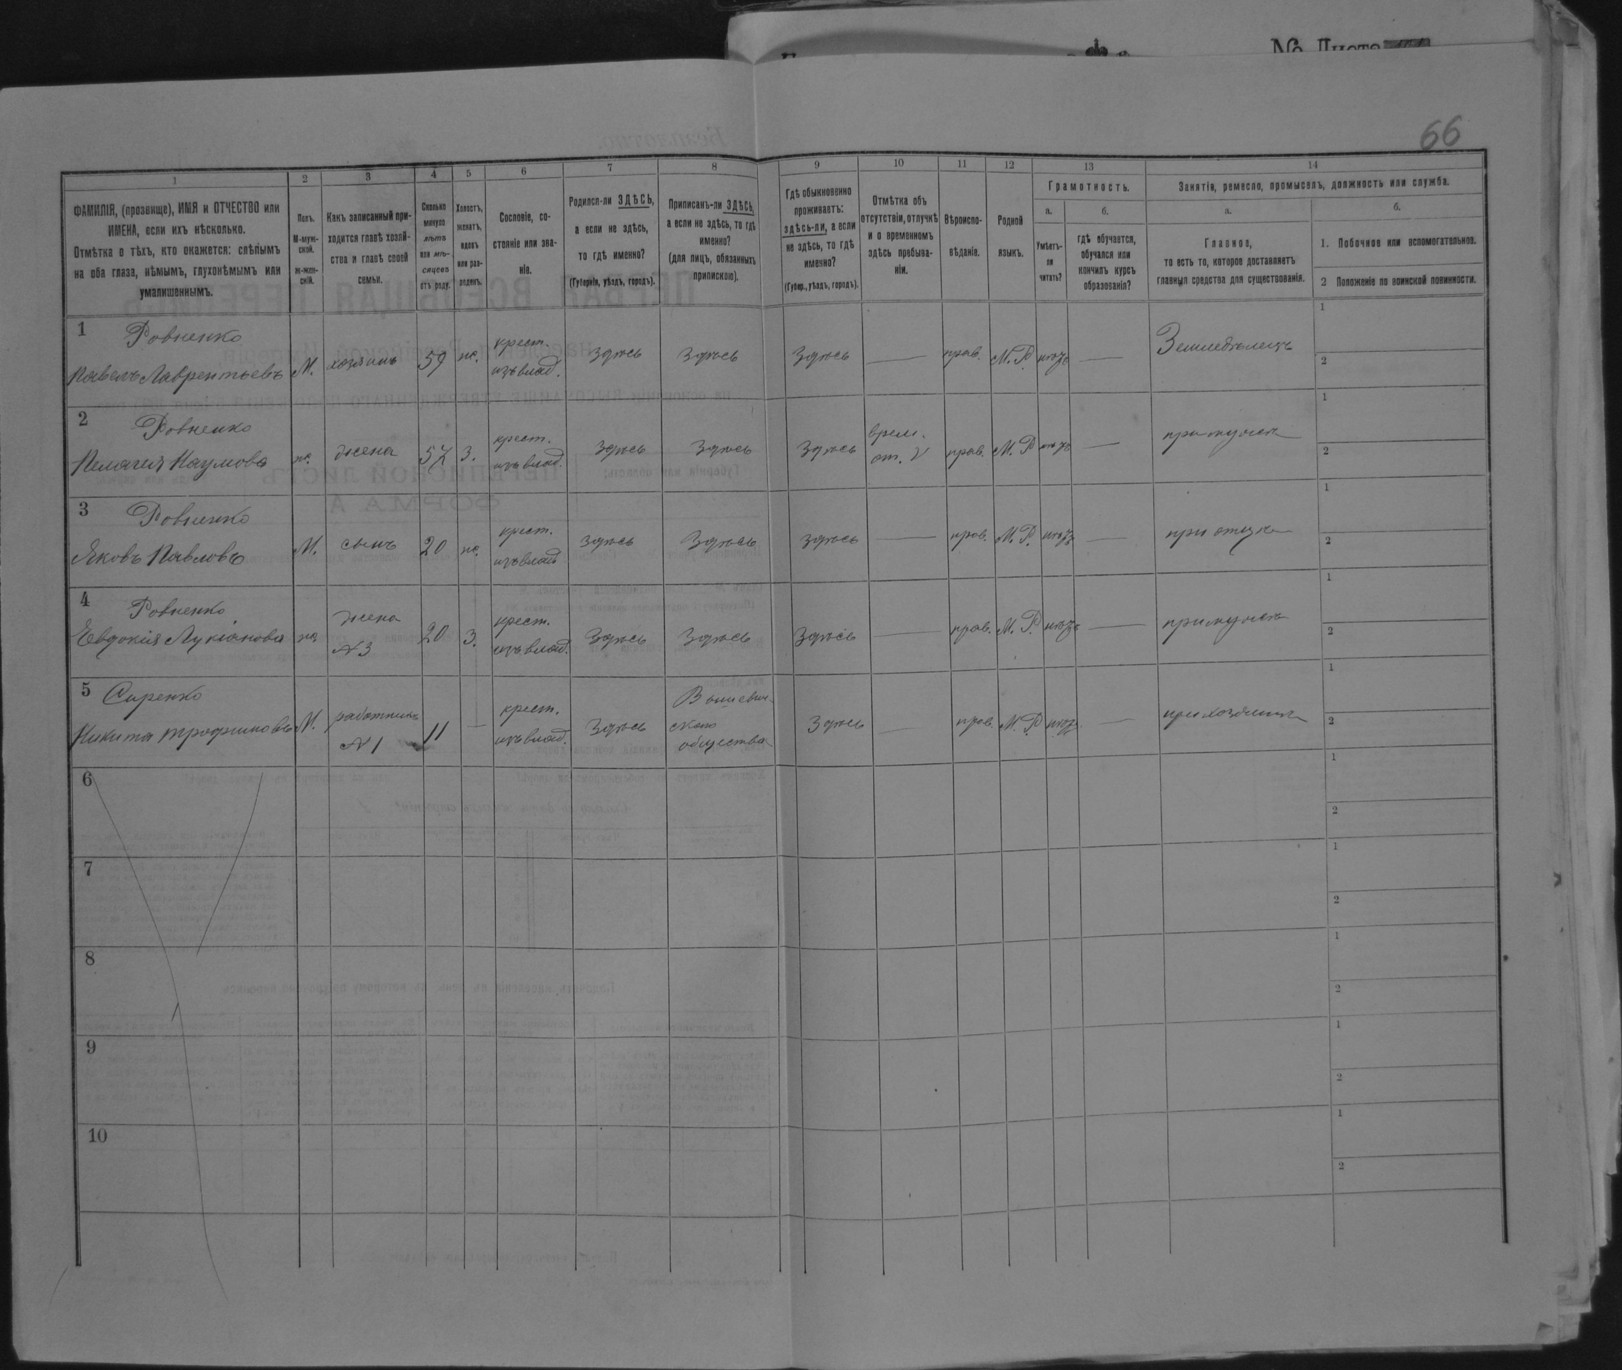 № Листа
66
1 2 3 4 5 6 7 8 9 10 11 12 13 14
ФАМИЛІЯ, (прозвище), ИМЯ и ОТЧЕСТВО или
ИМЕНА, если ихъ нѣсколько.
Отмѣтка о тѣхъ, кто окажется: слѣпымъ
на оба глаза, нѣмымъ, глухонѣмымъ или
умалишеннымъ.
Полъ.
М-муж-
ской.
ж-жен-
скій.
Какъ записанный при-
ходится главѣ хозяй-
ства и главѣ своей
семьи.
Сколько
минуло
лѣтъ
или мѣ-
сяцевъ
отъ роду.
Холостъ,
женатъ,
вдовъ
или раз-
веденъ.
Сословіе, со-
стояніе или зва-
ніе.
Родился-ли ЗДѢСЬ,
а если не здѣсь,
то гдѣ именно?
(Губернія, уѣздъ, городъ).
Приписанъ-ли ЗДѢСЬ,
а если не здѣсь, то гдѣ
именно?
(для лицъ, обязанныхъ
припискою).
Гдѣ обыкновенно
проживаетъ:
здѣсь-ли, а если
не здѣсь, то гдѣ
именно?
(Губер., уѣздъ, городъ).
Отмѣтка объ
отсутствіи, отлучкѣ
и о временномъ
здѣсь пребыва-
ніи.
Вѣроиспо-
вѣданіе.
Родной
языкъ.
Грамотность.
а.
Умѣетъ-
ли
читать?
б.
Гдѣ обучается,
обучался или
кончилъ курсъ
образованія?
Занятія, ремесло, промыселъ, должность или служба.
а.
Главное,
то есть то, которое доставляетъ
главныя средства для существованія.
б.
1. Побочное или вспомогательное.
2 Положеніе по воинской повинности.
1 Ровненко
Павелъ Лаврентьевъ М. хозяинъ 59 же. крест. изъ влад. Здѣсь Здѣсь Здѣсь — прав. М.Р. нѣтъ — Земледѣлецъ
1
2
2 Ровненко
Пелагея Наумова же. жена 57 З. крест. изъ влад. Здѣсь Здѣсь Здѣсь врем. от. прав. М.Р. нѣтъ — при мужѣ
1
2
3 Ровненко
Яковъ Павловъ М. сынъ 20 же. крест. изъ влад. Здѣсь Здѣсь Здѣсь — прав. М.Р. нѣтъ — при отцѣ
1
2
4 Ровненко
Евдокія Лукіанова же жена №3 20 З. крест. изъ влад. Здѣсь Здѣсь Здѣсь — прав. М.Р. нѣтъ — при мужѣ
1
2
5 Сиренко
Никита Трофимовъ М. работникъ №1 11 — крест. изъ влад. Здѣсь общества Здѣсь — прав. М.Р. нѣтъ — при хозяинѣ
1
2
6
1
2
7
1
2
8
1
2
9
1
2
10
1
2